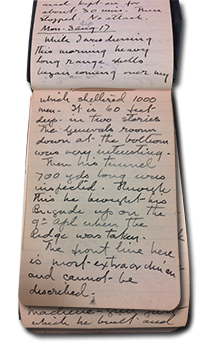 and kept on for
about 30 min. Then
stopped. No attack.
Mon. 3 Aug 17
While Davis dunning
this morning heavy
long range shells
began coming over my
which sheltered 1000
men. It is 60 feet
deep in two stories
The Generals room
down at the bottom
was very interesting.
Then his tunnel
700 yds long was
inspected. Through
this he brought his
Brigade up on the
9th Apl when the
Ridge was taken.
The front line here
is most extraordinary
and cannot be
described.
machine-gun
which he built and